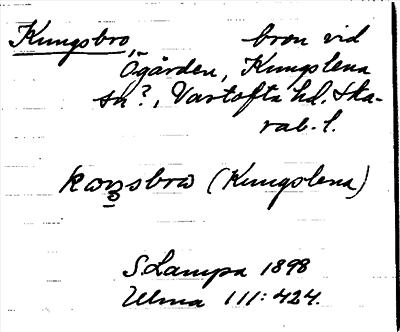 Kungsbro, bron vid
Ögården, Kungslena
sn?, Vartofta hd. Ska-
rab. l.
kωŋsbrω (Kungslena)
S Lampa 1898
Ulma 111:424.